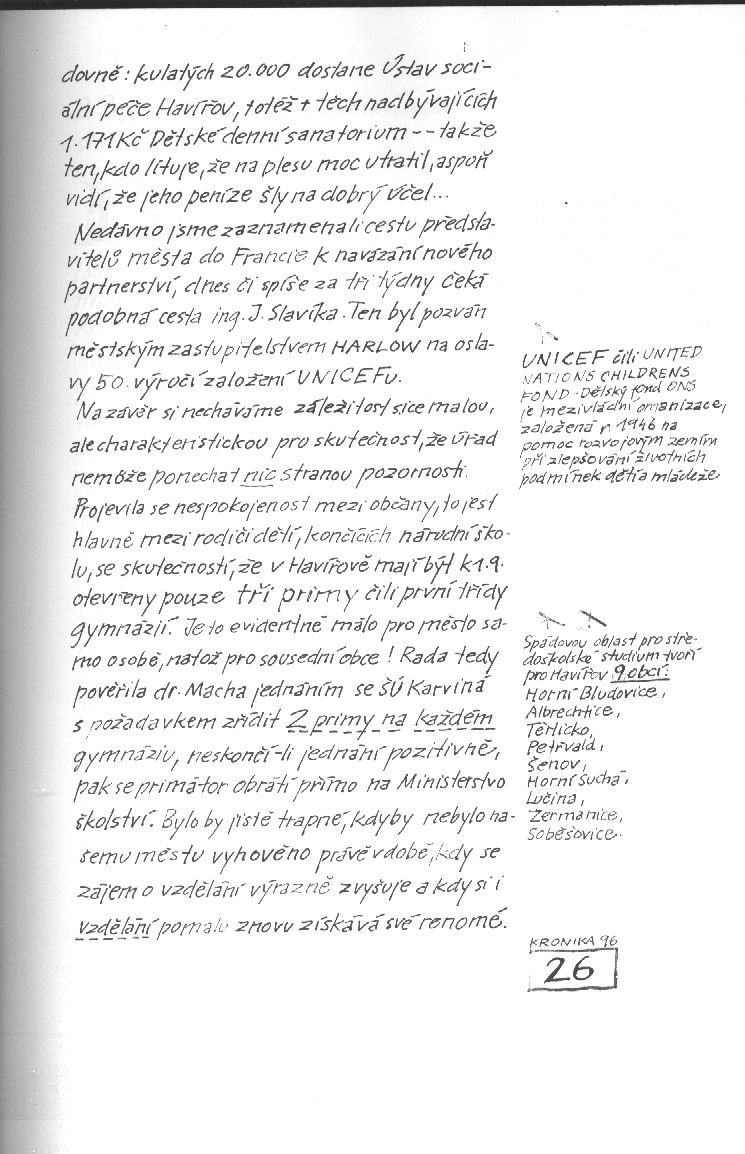 dovně: kulatých 20.000 dostane Ústav soci-
ální péče Havířov, totéž + těch nadbývajících
1.171Kč Dětské denní sanatorium -- takže
ten, kdo lituje, že na plesu moc utratil, aspoň
vidí, že jeho peníze šly na dobrý účel...
Nedávno jsme zaznamenali cestu předsta-
vitelů města do Francie k navázání nového
partnerství, dnes či spíše za tři týdny čeká
podobná cesta ing. J. Slavíka. Ten byl pozván
městským zastupitelstvem HARLOW na osla-
vy 50. výročí založení UNICEFu.
Na závěr si necháváme záležitost sice malou,
ale charakteristickou pro skutečnost, že úřad
nemůže ponechat nic stranou pozornosti.
Projevila se nespokojenost mezi občany, to jest
hlavně mezi rodiči dětí, končících národní ško-
lu, se skutečností, že v Havířově mají být k 1.9.
otevřeny pouze tři primy čili první třídy
gymnázií. Je to evidentně málo pro město sa-
mo osobě, natož pro sousední obce! Rada tedy
pověřila dr. Macha jednáním se ŠÚ Karviná
s požadavkem zřídit 2 primy na každém
gymnáziu, neskončí-li jednání pozitivně,
pak se primátor obrátí přímo na Ministerstvo
školství. Bylo by jistě trapné, kdyby nebylo na-
šemu městu vyhověno právě v době, kdy se
zájem o vzdělání výrazně zvyšuje a kdy si i
vzdělání pomalu znovu získává své renomé.
UNICEF čili UNITED
NATIONS CHILDRENS
FOND - Dětský fond ONS
je mezivládní organizace,
založená r. 1946 na
pomoc rozvojovým zemím
při zlepšování životních
podmínek dětí a mládeže
Spádovou oblast pro stře-
doškolské studium tvoří
pro Havířov 9 obcí:
Horní Bludovice,
Albrechtice,
Těrlicko,
Petřvald,
Šenov,
Horní Suchá,
Lučina,
Žermanice,
Soběšovice.
KRONIKA 96
26